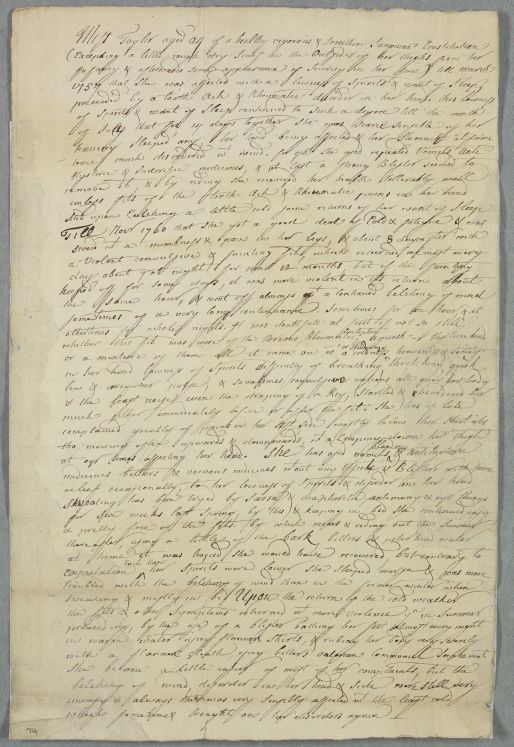 Miss Taylor aged 34 of a healthy vigorous & somethings Sanguine Constitution
(Excepting a little rough dry Scurf on the Outside of her thighs from her
Infancy & afterwards some appearance of Scurvy on her face) till March
1757 that she was affected with a lowness of Spirits & want of Sleep
preceeded by a tooth Ach & Rheumatic disorder in her head. this lowness
of Spirits & want of Sleep continued to such a degree till the month
of July that for 14 days together she was scarce sensible of her
having Sleeped any & her head being affected & her Stomach at same
time much disordered wt wind. for wh. she used repeated Vomits, Anti
Hysteric & Sudorific medicines, & at last a strong Blister seemed to
remove it, & by riding she recovered her health tollerably well
unless fits of the tooth Ach & Rheumatic pains in her head
and upon Catching a little cold some returns of her want of Sleep
Till Novr 1760 that she got a good deal of Cold & fatigue & was
seized wt a numbness & pain in her legs, & about 8 days after with
a Violent convulsive & fainting fit, which returned almost every
day about 7 at night for near 12 months, but if the fever
keeped off for some days, it was more violent in its return about
the same hour, & went off always wt a continued belching of wind
sometimes of a very long continuance sometimes for an hour & at
othertimes for whole nights. It was doubtfull at first
whether this fit was more of the Nervous, Rheumatic, Hysteric kind
or a mixture of them all it came on wt a coldness, heaviness &
in her head lowness of Spirits difficulty of breathing quick
low & irregular pulse, & sometimes convulsive motions all over her body
& the least noise even the droping of a Key, startled & disordered her
much either immediately before or after the fit. She has of late
complained greatly of pain in her left side mostly below the Short ribs
tho moved often upwards & downwards, wt a creeping down her thigh
at other times affecting her head. She has used vomits, bleeding & antihysteric
medicines bitters & nervous medicines wtout any effect & Blisters with some
relief occasionally to her lowness of Spirits & disorder in her head
Sweating has been tryed by Sarsa & diaphoretic antimony & other things
for six weeks last Spring, by this & keeping in bed she continued easy
& pretty free of the fits, by which means & riding out the Summer
thereafter, using a little of the bark bitters & water
at home it was hoped she would have recovered but contrary to
expectation her Spirits were lower she sleeped worse & was more
troubled with the belching of wind than in the former winter when
sweating & mostly in bed. Upon the return of the cold weather
the fits & other Symptoms returned wt more violence yn in Summer
preceeding, by the use of a blister bathing her feet almost every night
in warm water using flannen Shirts, & rubing her body very severely
with a flannen cloath using bitters valerian
She became a little easier of most of her complaints, but the
belching of wind, disorder in her head & Side were still very
uneasy & always she was very sensibly affected wt the least cold
which sometimes brought on her disorders again